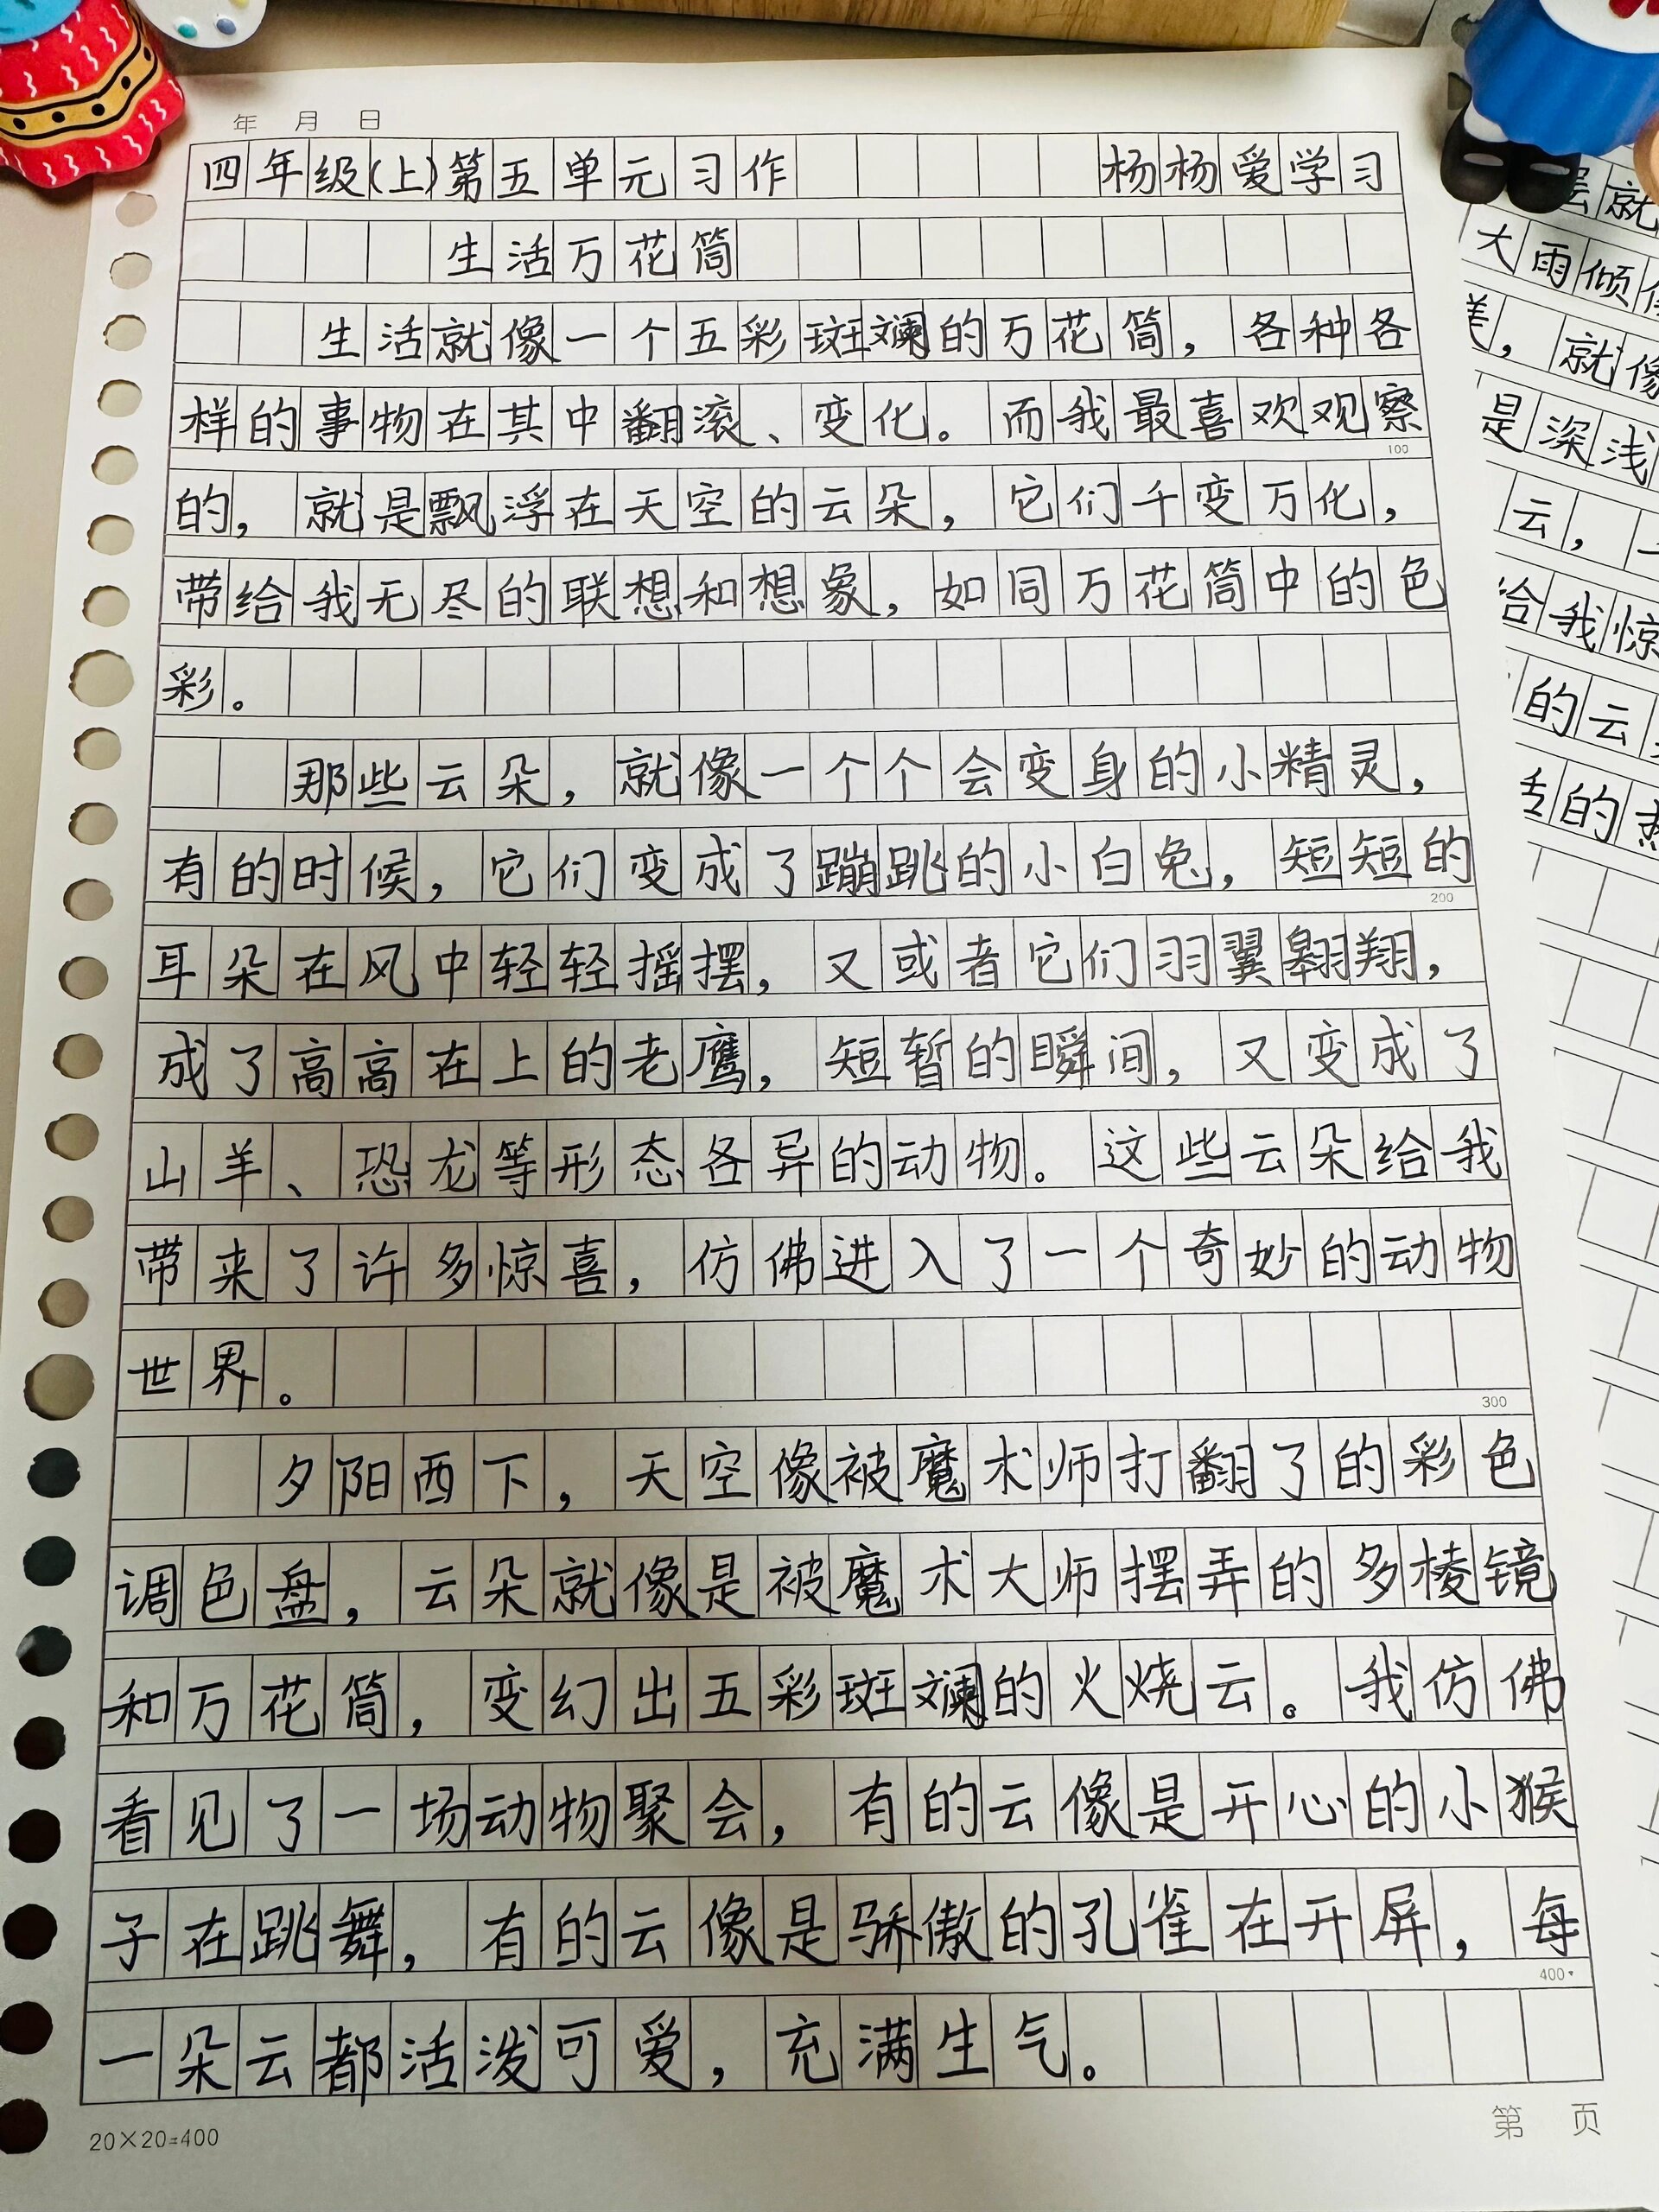 年 月 日
四年级(上)第五单元习作 杨杨爱学习
生活万花筒
生活就像一个五彩斑斓的万花筒，各种各
样的事物在其中翻滚、变化。而我最喜欢观察
100
的，就是飘浮在天空的云朵，它们千变万化，
带给我无尽的联想和想象，如同万花筒中的色
彩。
那些云朵，就像一个个会变身的小精灵，
有的时候，它们变成了蹦跳的小白兔，短短的
200
耳朵在风中轻轻摇摆，又或者它们羽翼翱翔，
成了高高在上的老鹰，短暂的瞬间，又变成了
山羊、恐龙等形态各异的动物。这些云朵给我
带来了许多惊喜，仿佛进入了一个奇妙的动物
世界。
300
夕阳西下，天空像被魔术师打翻了的彩色
调色盘，云朵就像是被魔术大师摆弄的多棱镜
和万花筒，变幻出五彩斑斓的火烧云。我仿佛
看见了一场动物聚会，有的云像是开心的小猴
子在跳舞，有的云像是骄傲的孔雀在开屏，每
400
一朵云都活泼可爱，充满生气。
20×20=400
第 页
就
大雨倾
，就像
是深浅
云，
给我惊
的云
的